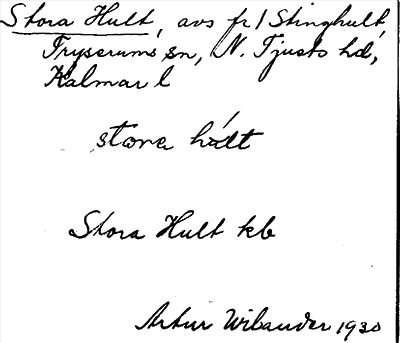 Stora Hult, avs fr / Stinghult,
Tryserums sn, N. Tjusts hd,
Kalmar l
stora hult
Stora Hult kb
Artur Wibander 1930